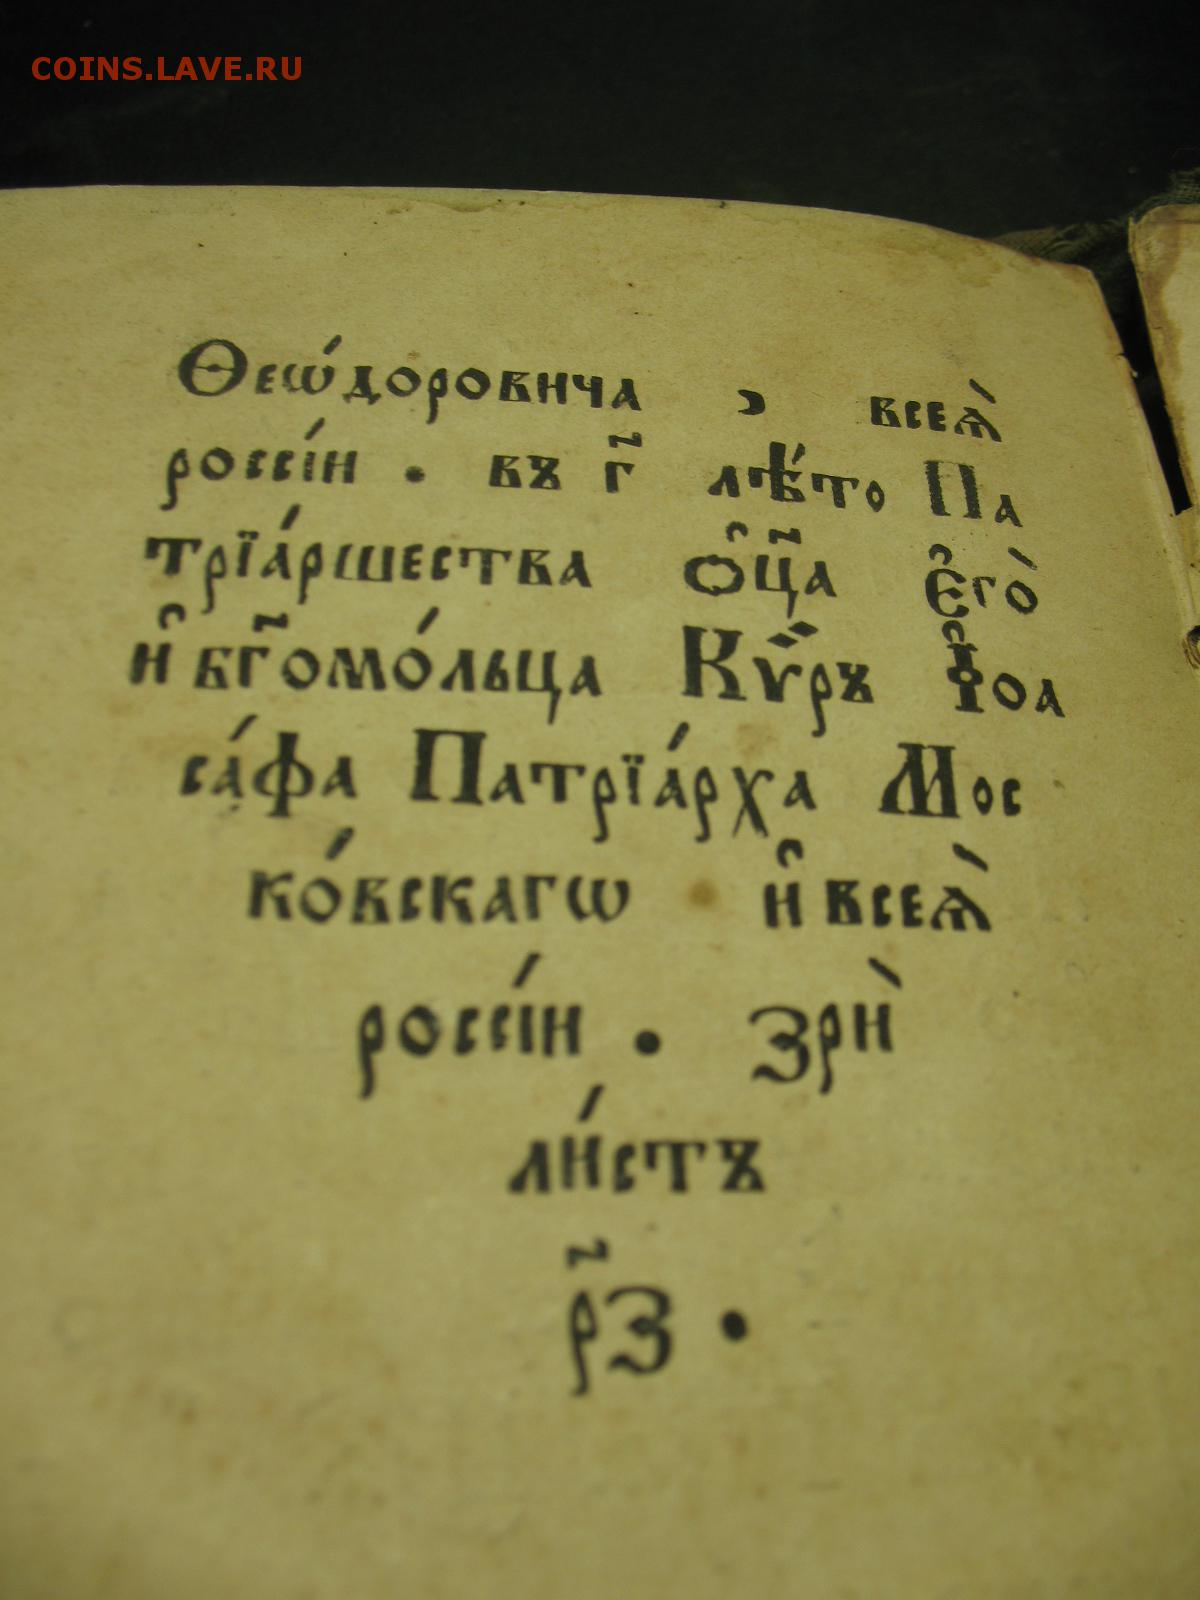 COINS.LAVE.RU
Ѳеѡ́доровича , всеѧ̀
россі́и . въ г҃ лѣ́то Па
трїа́ршества ѻ҆ц҃а є҆гѡ̀
и҆ бг҃омо́льца Кѷ́ръ І҆оа
са́фа Патрїа́рха Мос
ко́вскагѡ и҆ всеѧ̀
россі́и . Зрѝ
ли́стъ
р҃з .